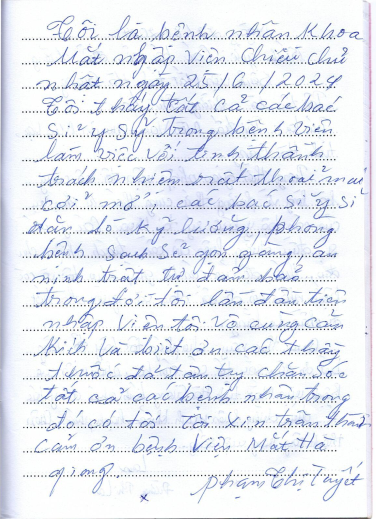 Tôi là bệnh nhân Khoa
Mắt nhập viện chiều chủ
nhật ngày 25/6/2024
Tôi thấy tất cả các bác
Sĩ y Sỹ trong bệnh viện
làm việc với tinh thần
trách nhiệm rất thoải mái
cởi mở, các bác sĩ y sĩ
dặn dò kỹ lưỡng, phòng
bệnh sạch sẽ gọn gàng, an
ninh trật tự đảm bảo
trong đời tôi lần đầu tiên
nhập viện tôi vô cùng cảm
Kích và biết ơn các thầy
thuốc đã tận tay chăm sóc
tất cả các bệnh nhân trong
đó có tôi Tôi xin trân thành
cảm ơn bệnh viện Mắt Hà
giang.
phạm Thị Tuyết
x